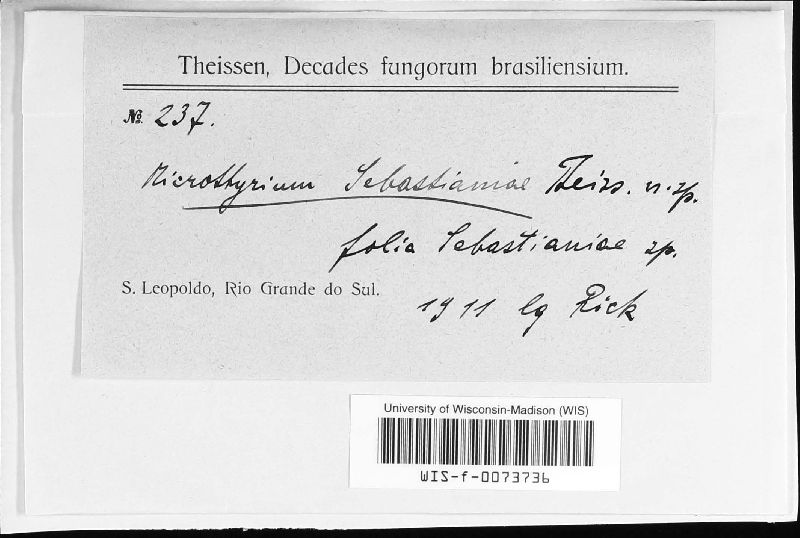 Theissen, Decades fungorum brasiliensium.
№ 237.
Microthyrium Sebastianiae Theiss. n. sp.
folia Sebastianiae sp.
S. Leopoldo, Rio Grande do Sul.
1911 lg Rick
University of Wisconsin-Madison (WIS)
WIS-f-0073736